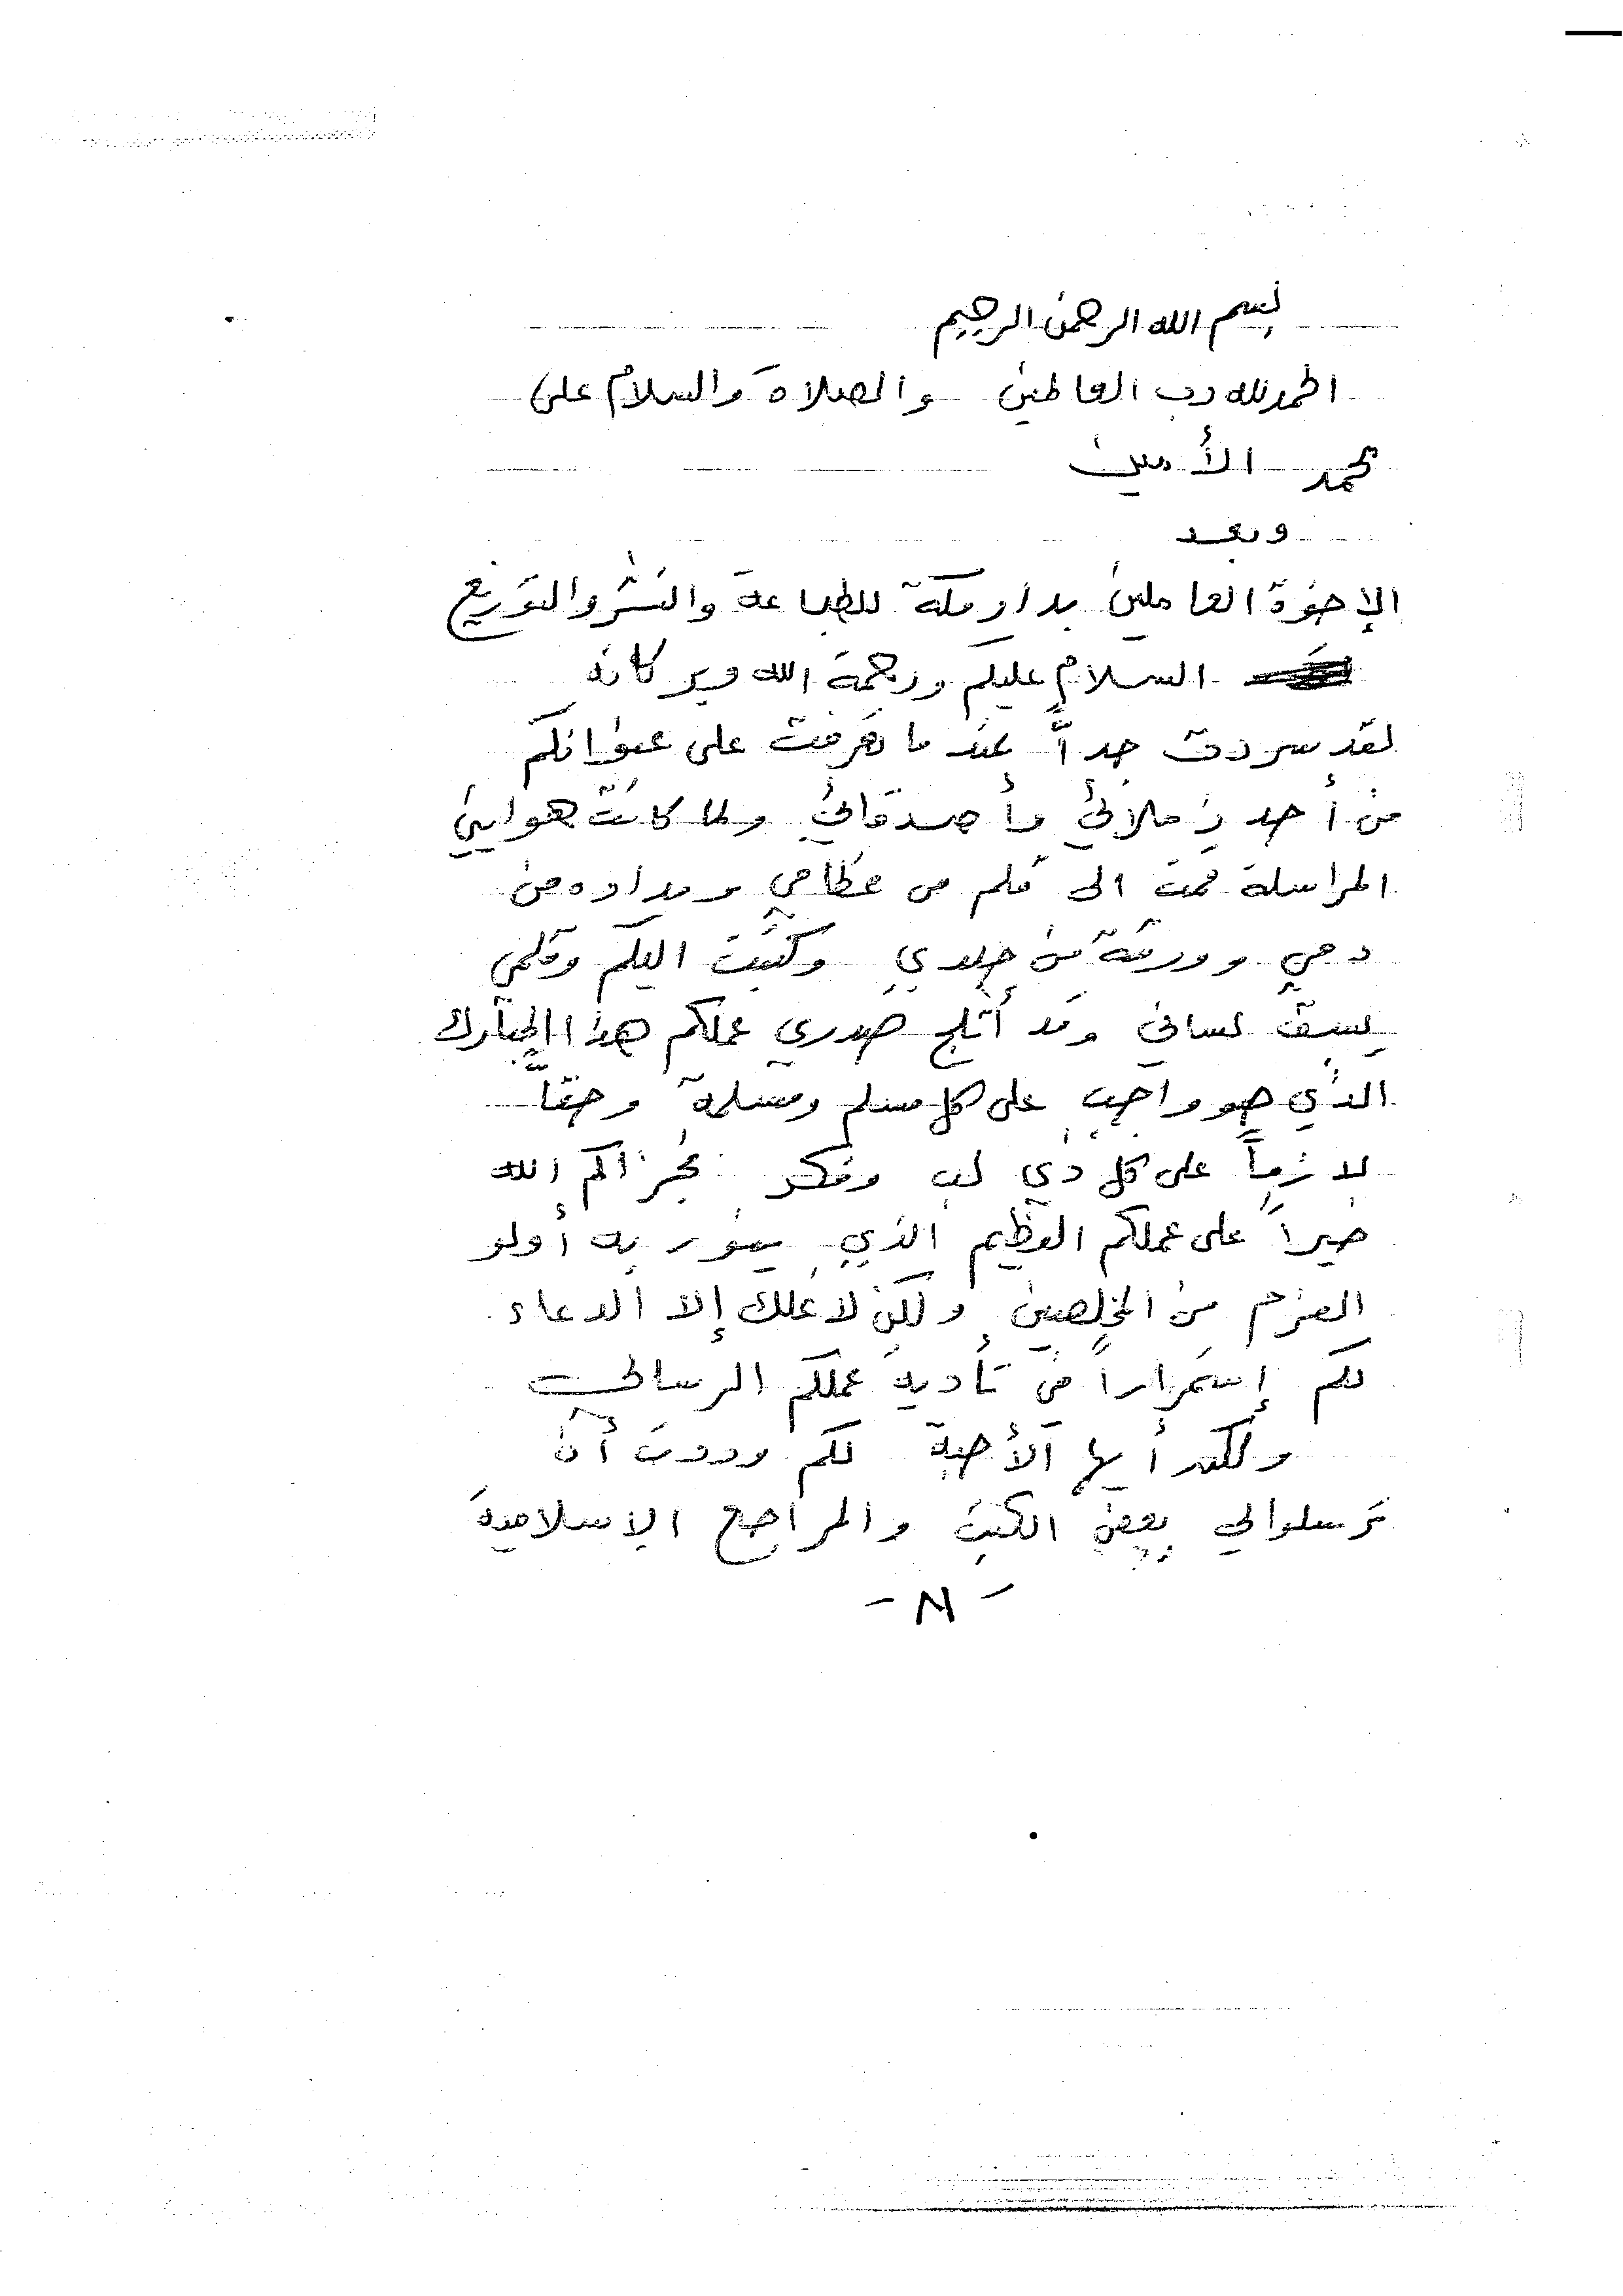 بسم الله الرحمن الرحيم
الحمد لله رب العالمين والصلاة والسلام على
محمد الأمين
وبعد
الإخوة العاملين بدار مكة للطباعة والنشر والتوزيع
السلام عليكم ورحمة الله وبركاته
لقد سررت جداً عند ما تعرفت على عنوانكم
من أحد زملائي وأصدقائي ولما كانت هوايتي
المراسلة قمت الى قلم من عظامي ومداده من
دمي وورقة من جلدي وكتبت اليكم وقلمي
يسبق لساني وقد أثلج صدري عملكم هذا المبارك
الذي هو واجب على كل مسلم ومسلمة وحقاً
لازماً على كل ذي لب وفكر فجزاكم الله
خيراً على عملكم العظيم الذي يفوز به أولو
العزم من المخلصين ولكن لا نملك إلا الدعاء
لكم إستمراراً في تأدية عملكم الرسالي
ولكن أيها الأحبة لكم وددت أن
ترسلوا لي بعض الكتب والمراجع الإسلامية